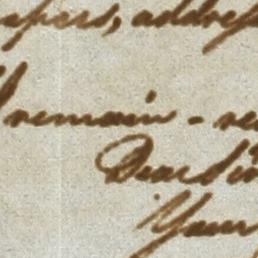 spers, address
I remain - re
Dear Sir
Your